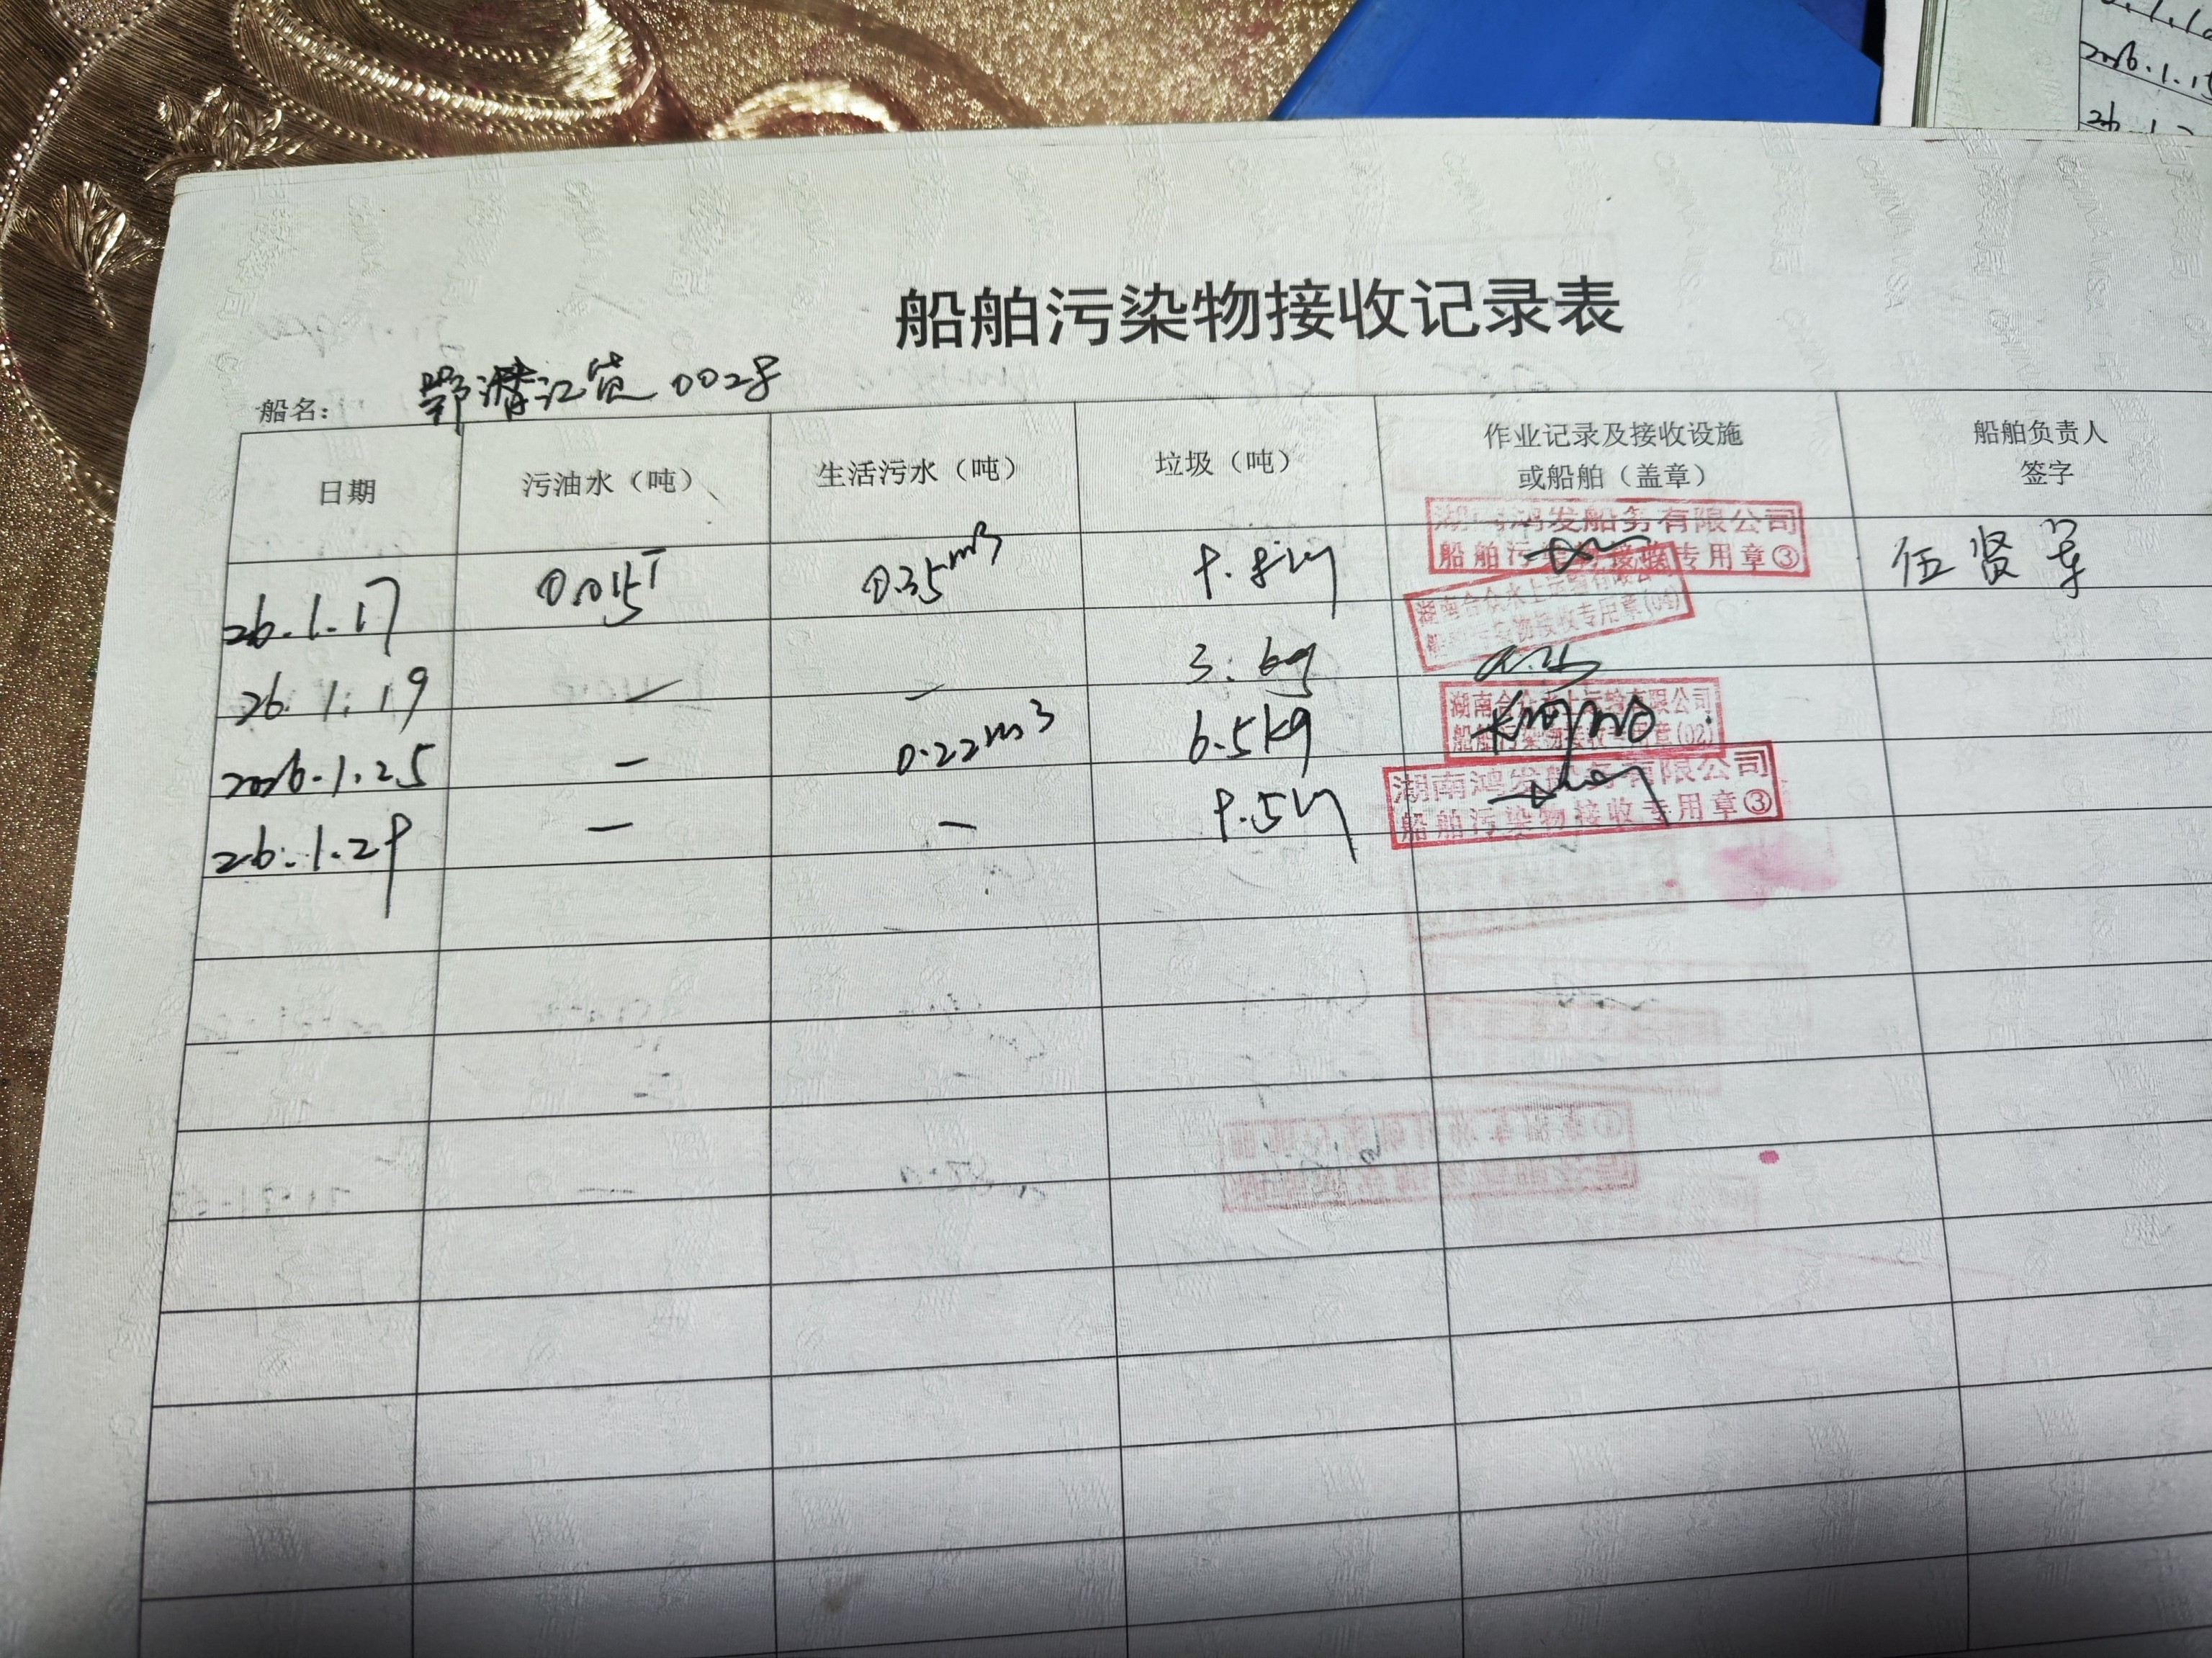 船舶污染物接收记录表
船名： 鄂潜江货002号
日期 污油水（吨） 生活污水（吨） 垃圾（吨） 作业记录及接收设施或船舶（盖章） 船舶负责人签字
26.1.17 0.015T 0.35m3 9.8kg 湖南鸿发船务有限公司 船舶污染物接收专用章③ 伍贤军
26.1.19 — — 3.6kg 湖南合众水上运输有限公司 船舶污染物接收专用章(04)
2026.1.25 — 0.22m3 6.5kg 湖南合众水上运输有限公司 船舶污染物接收专用章(02)
26.1.29 — — 9.5kg 湖南鸿发船务有限公司 船舶污染物接收专用章③
2026.1.15